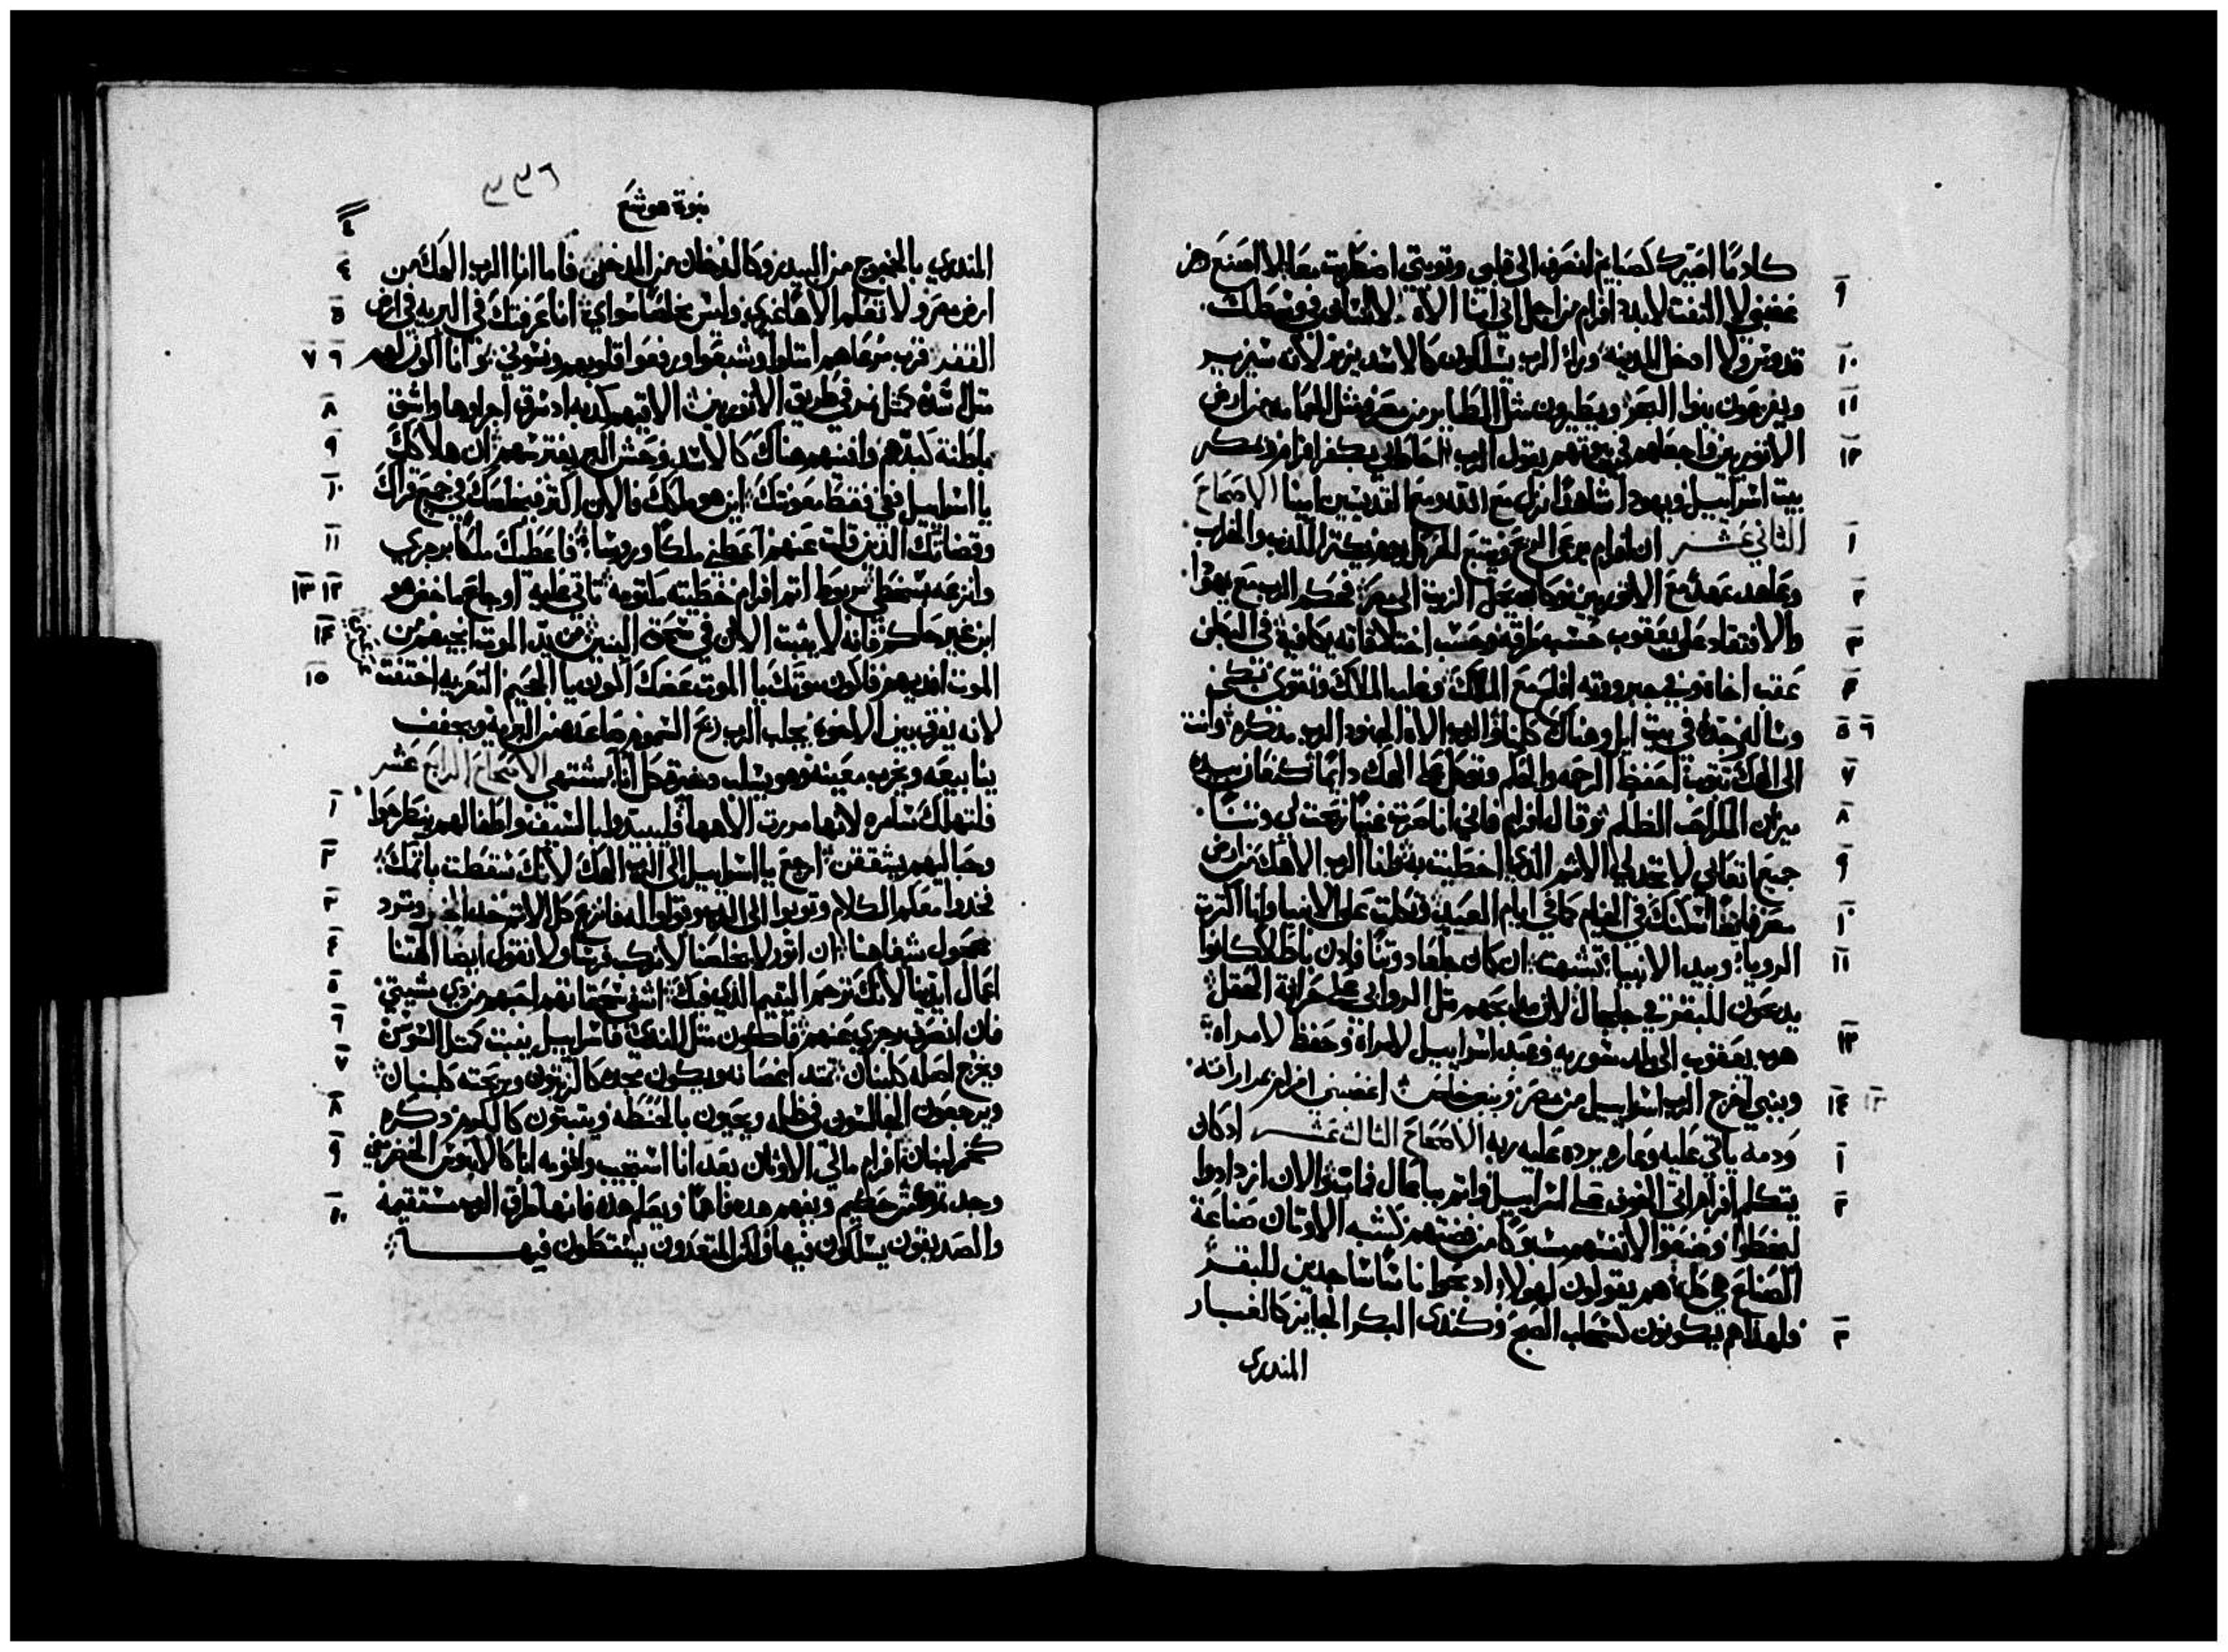 كادما اصيرك كصبايم انصرف الى قلبي وتوبتي اضطربت معا لا اصنع هن
٩ غضبي لا التفت لابدد افرام من اجل اني انا الاه لا انسان في وسطك
١٠ قدوس ولا ادخل المدينه وراء الرب يسلكون كالاسد يزير لانه سيزير
١١ ويفزعون بنوا البحر ويطيرون مثل الطاير من مصر ومثل الحمامه من ارض
١٢ الاتوريين واجعلهم في بيوتهم يقول الرب احاط بي بكفر افرام وبمكر
بيت اسراييل ويهودا شاهدا نزل مع الله ومع القديسين امينا الاصحاح
١ الثاني عشر ان افرام يرعى الريح ويتبع الحر كل يوم يكتر الكذب والخراب
٢ وعاهد عهدا مع الاتوريين وكان يحمل الزيت الى مصر فحكم الرب مع يهودا
٣ والافتقاد على يعقوب حسب طرقه وحسب اختلاقاته يكافيه في البطن
٤ عقب اخاه وفي جبرووته افلح مع الملاك وغلب الملاك وتقوى بكى
٥ ٦ وساله وجده في بيت ايل وهناك كلمنا والرب الاه الجنود الرب مذكره وانت
٧ الى الهك تتوب احفظ الرحمه والحكم وتوكل على الهك دايما كنعان بيده
٨ ميزان المكر احب الظلم وقال افرام فاني انا صرت غنيا وجدت لي وتنا
٩ جميع اتعابي لا تجد لي الاثم الذي اخطيت به وانا الرب الاهك من ارض
١٠ مصر فايضا اسكنك في الخيام كما في ايام العيد وتكلمت على الانبيا وانا اكترت
١١ الرويا وبيد الانبيا تشبهت ان كان جلعاد وتنا فاذن باطلا كانوا
يدبحون للبقر في جلجال لان مدابحهم مثل الروابي على حراثة الحقل
١٢ هرب يعقوب الى بلد سوريه وعبد اسراييل لامراه وحفظ لامراه
١٣ ١٤ وبنبي اخرج الرب اسراييل من مصر وبنبي خلصت اغضبني افرام بمرارته
ودمه ياتي عليه وعاره يرده عليه ربه الاصحاح الثالث عشر اذ كان
١ يتكلم افرام اتى الخوف على اسراييل واتم بباعال فمات والان ازدادوا
٢ ليخطوا وصنعوا لانفسهم مسبوكا من فضتهم كشبه الاوتان صناعة
الصناع هي كلها هم يقولون لهولاء ادبحوا ناسا ساجدين للبقر
٣ فلهذا هم يكونون كسحاب الصبح وكندى البكر الجايز كالغبار
المندري
٣٣٦
نبوة هوشع
٤ المندري بالخروج من البيدر وكالدخان من المدخن فاما انا الرب الهك من
٥ ارض مصر ولا تعلم الاها غيري وليس مخلصا سواي انا عرفتك في البريه في ارض
٦ ٧ القفر قرب مرعاهم امتلوا وشبعوا ورفعوا قلوبهم ونسوني وانا اكون لهم
٨ مثل لبوه كمثل نمر في طريق الاتوريين الاقيهم كدبه اذ سرق اجراوها واشق
٩ باطنة كبدهم وافنيهم هناك كالاسد وحش البر يفترسهم ان هلاكك
١٠ يا اسراييل في فقط معونتك اين هو ملكك فالان اكتر فيخلصك في جميع قراك
١١ وقضاتك الذين قلت عنهم اعطني ملكا وروسا فاعطيك ملكا برجزي
١٢ ١٣ وانزعه بسخطي مربوط اتم افرام خطيته مكتومه تاتي عليه اوجاع ماخض هو
١٤ ابن غير حكيم فانه لا يثبت الان في سحق البنين من يد الموت انجيهم من
١٥ الموت افديهم فاكون موتك يا الموت عضك اكون يا الجحيم التعزيه اختفت
لانه يفرق بين الاخوه يجلب الرب ريح السموم صاعده من البريه ويجفف
ينابيعه ويخرب معينه وهو يسلب ذخيرة كل انا يشتهى الاصحاح الرابع عشر
١ فلتهلك سامره لانها مررت الاهها فليبيدوا بالسيف واطفالهم يطرحوا
٢ وحبالهم يشققن ارجع يا اسراييل الى الرب الهك لانك سقطت باتمك
٣ فخدوا معكم الكلام وتوبوا الى الرب وقولوا له انزع كل الاتم خد الخير ونرد
٤ عجول شفاهنا ان اتور لا يخلصنا لا نركب فرسا ولا نقول ايضا الهتنا
٥ اعمال ايدينا لانك ترحم اليتيم الذي فيك اشفي سحقاتهم احبهم من دي مشيتي
٦ فان انصرف رجزي عنهم فاكون مثل الندى فاسراييل ينبت كمثل السوسن
٧ ويخرج اصله كلبنان تمتد اغصانه ويكون مجده كالزيتون وريحته كلبنان
٨ ويرجعون الجالسون في ظله ويحيون بالحنطه وينبتون كالكرم ذكره
٩ كخمر لبنان افرام مالي الاوتان بعد انا استجيب واقومه انا كالابوس الخضر مني
١٠ وجد تمرك من حكيم ويفهم هذه فاهما ويعلم هذه فانها طرق الرب مستقيمه
والصديقون يسلكون فيها ولكن المتعدون يسقطون فيها